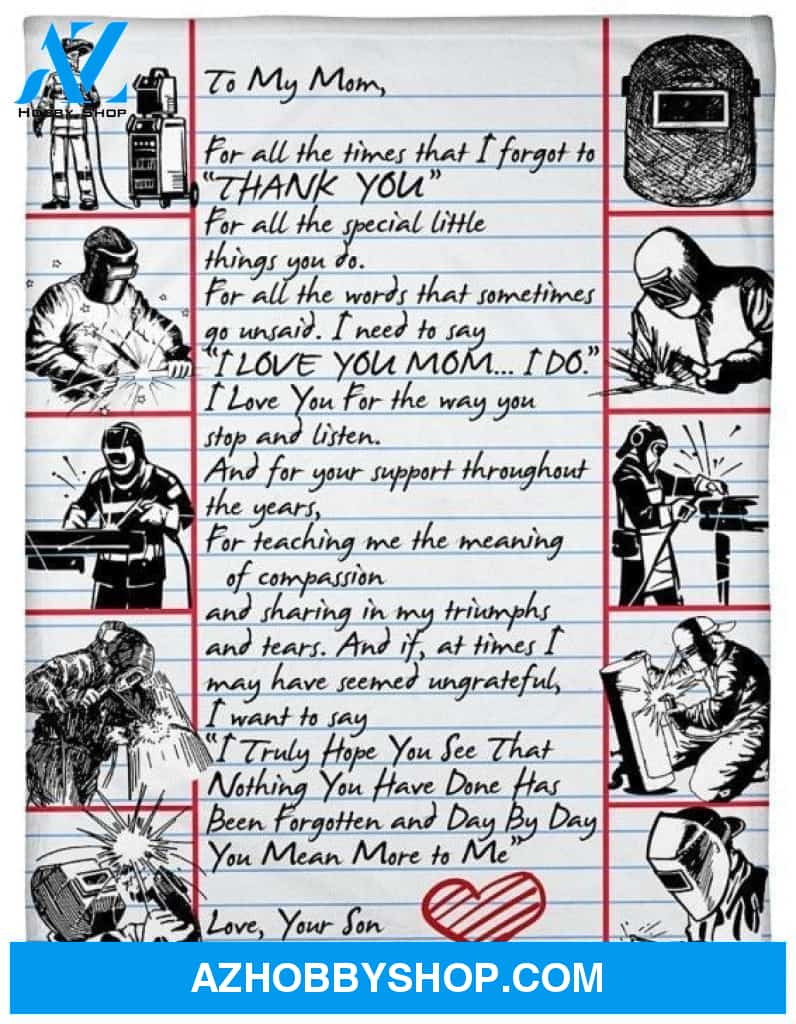 AZ
HOBBY SHOP
To My Mom,
For all the times that I forgot to
"THANK YOU"
For all the special little
things you do.
For all the words that sometimes
go unsaid. I need to say
"I LOVE YOU MOM... I DO."
I Love You For the way you
stop and listen.
And for your support throughout
the years,
For teaching me the meaning
of compassion
and sharing in my triumphs
and tears. And if, at times I
may have seemed ungrateful,
I want to say
"I Truly Hope You See That
Nothing You Have Done Has
Been Forgotten and Day By Day
You Mean More to Me"
Love, Your Son
AZHOBBYSHOP.COM